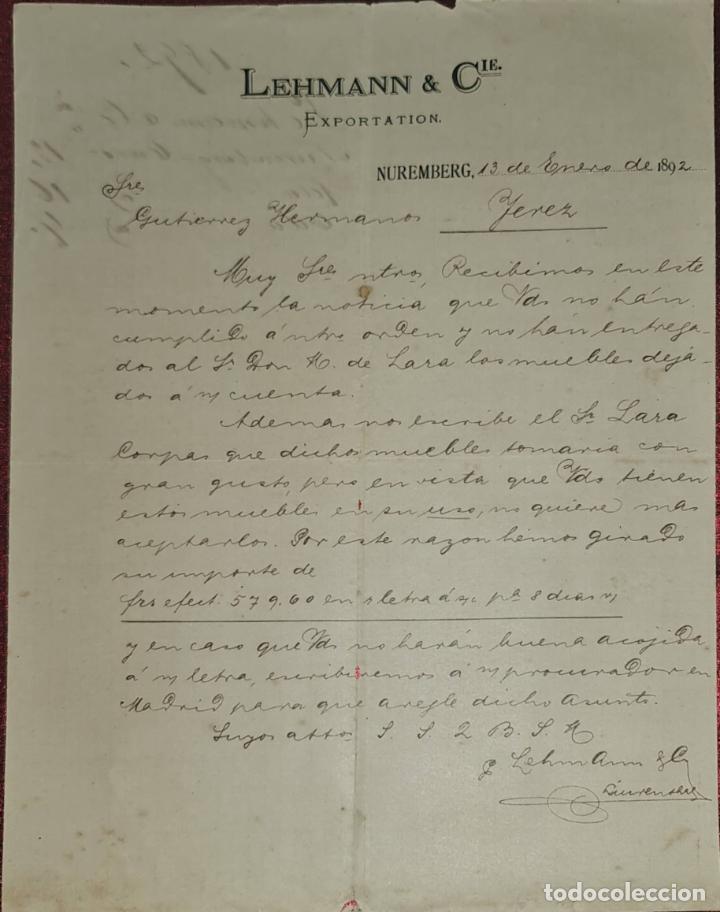 LEHMANN & CIE.
EXPORTATION.
NUREMBERG, 13 de Enero de 1892
Sres
Gutierrez Hermanos Jerez
Muy Sres ntros, Recibimos en este
momento la noticia que Vds no hán
cumplido á ntra orden y no hán entrega-
dos al Sr Don A. de Lara los muebles dejá-
dos á n/ cuenta.
Ademas nos escribe el Sr Lara
Corpas que dichos muebles tomaria con
gran gusto, pero en vista que Vds tienen
estos muebles en su uso, no quiere mas
aceptarlos. Por este razon hémos girado
su importe de
frs efect. 579.60 en letra á 8 dias v/
y en caso que Vds no harán buena acojida
á n/ letra, escribiremos á n/ procurador en
Madrid para que aregle dicho asunto.
Suyos attos S. S. Q B. S. M
p Lehmann & Co
todocoleccion
todocoleccion.net